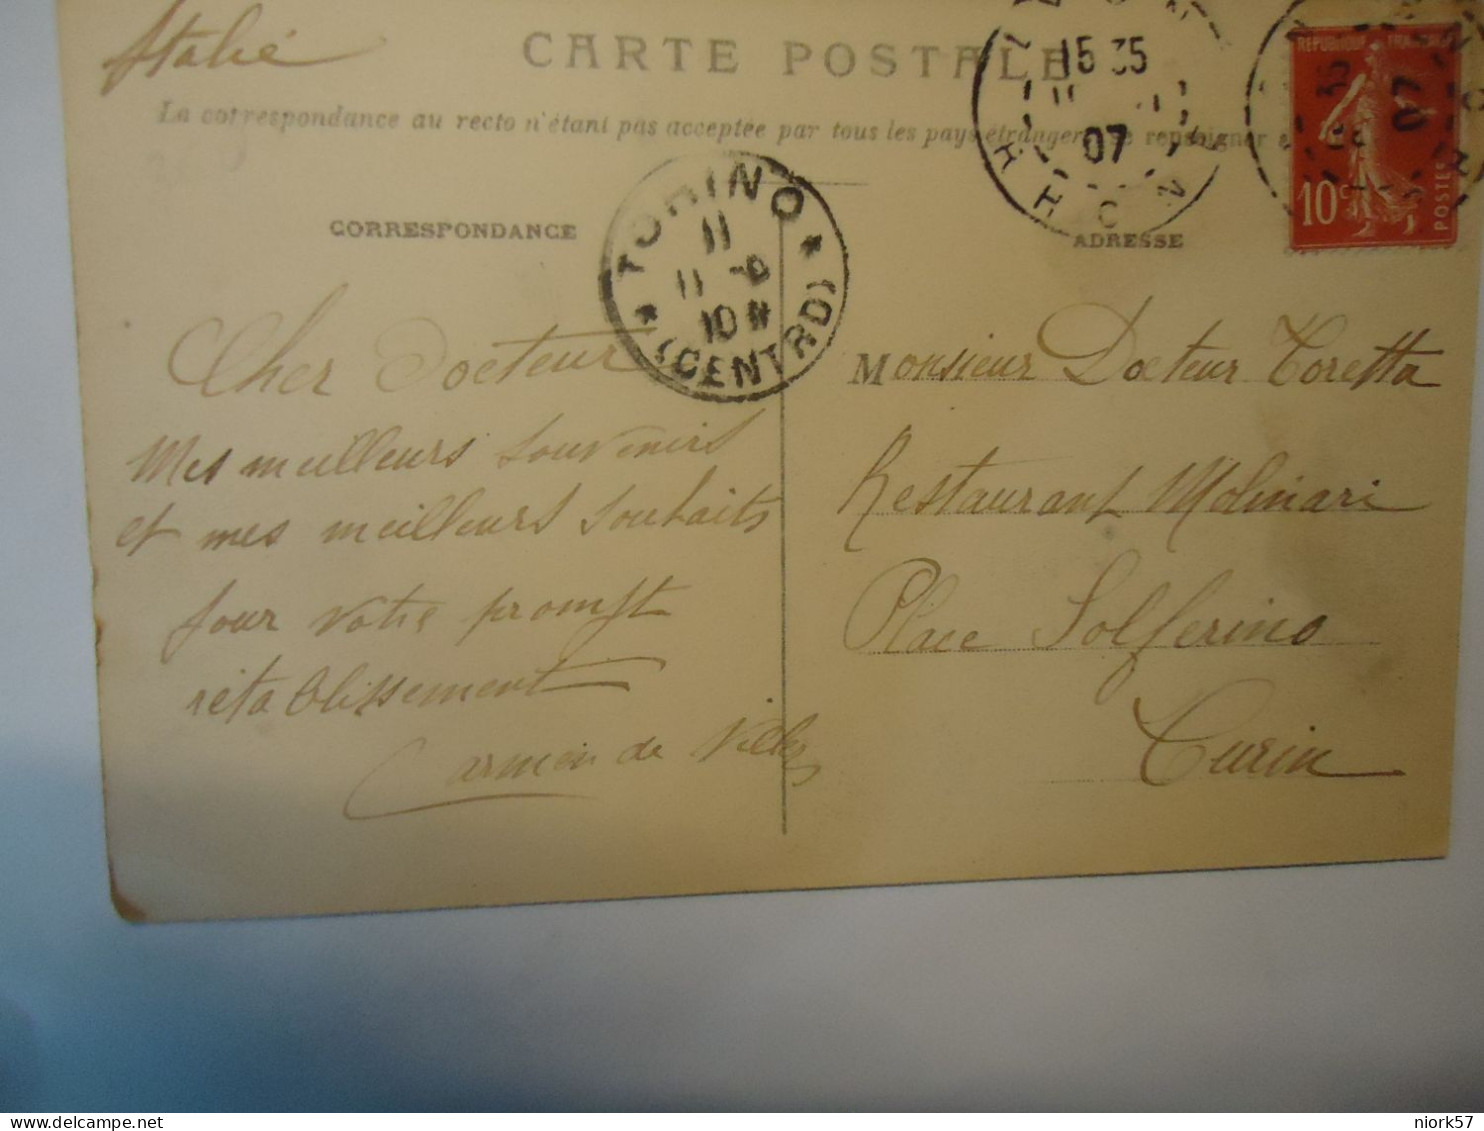 Italie
CARTE POSTALE
La correspondance au recto n'étant pas acceptée par tous les pays étrangers se renseigner
CORRESPONDANCE
ADRESSE
15 35
07
RHONE
TORINO
11
11
10
(CENTRO)
REPUBLIQUE FRANÇAISE
10c
POSTES
07
Cher Docteur
Mes meilleurs souvenirs
et mes meilleurs souhaits
pour votre prompt
rétablissement
Carmen de
Monsieur Docteur Toretta
Restaurant Molinari
Place Solferino
Turin
niork57